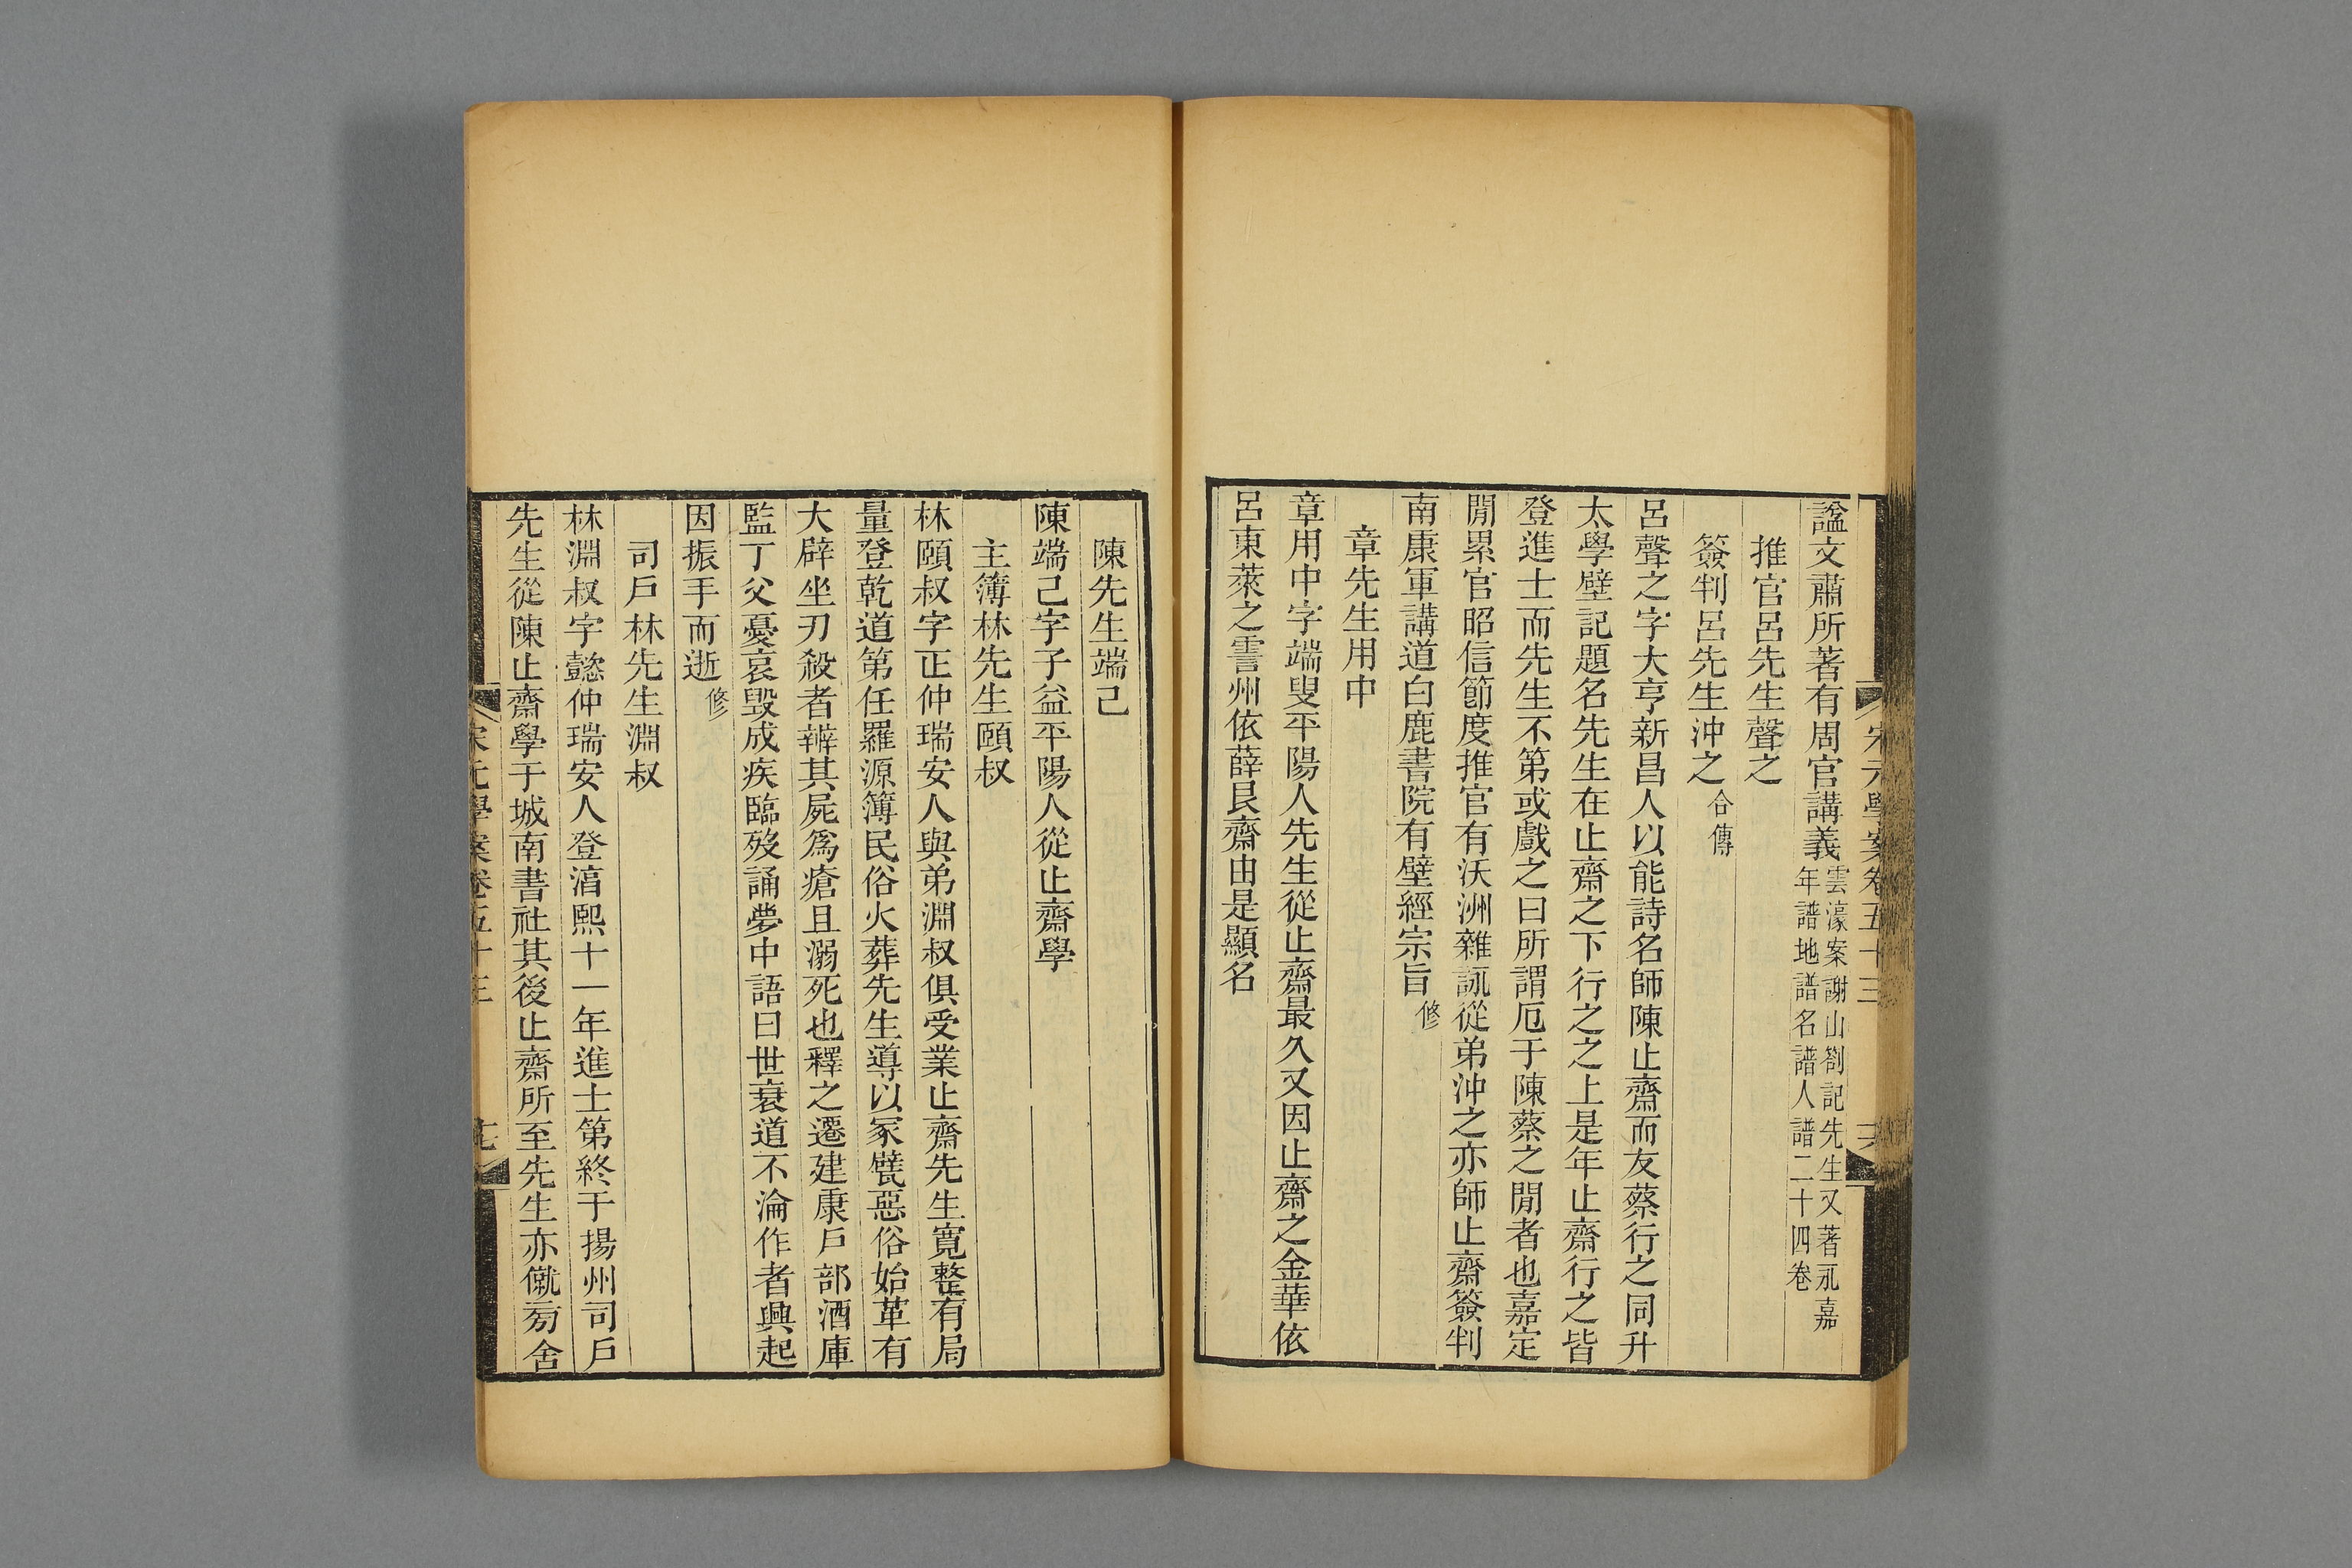 宋元學案卷五十三
諡文肅所著有周官講義雲濠案謝山劄記先生又著永嘉年譜地譜名譜人譜二十四卷
推官呂先生聲之
簽判呂先生沖之合傳
呂聲之字大亨新昌人以能詩名師陳止齋而友蔡行之同升
太學壁記題名先生在止齋之下行之之上是年止齋行之皆
登進士而先生不第或戲之曰所謂厄于陳蔡之閒者也嘉定
閒累官昭信節度推官有沃洲雜詠從弟沖之亦師止齋簽判
南康軍講道白鹿書院有壁經宗旨修
章先生用中
章用中字端叟平陽人先生從止齋最久又因止齋之金華依
呂東萊之霅州依薛艮齋由是顯名
陳先生端己
陳端己字子益平陽人從止齋學
主簿林先生頤叔
林頤叔字正仲瑞安人與弟淵叔俱受業止齋先生寬整有局
量登乾道第任羅源簿民俗火葬先生導以冢甓惡俗始革有
大辟坐刃殺者辨其屍爲瘡且溺死也釋之遷建康戶部酒庫
監丁父憂哀毀成疾臨歿誦夢中語曰世衰道不淪作者興起
因振手而逝修
司戶林先生淵叔
林淵叔字懿仲瑞安人登淳熙十一年進士第終于揚州司戶
先生從陳止齋學于城南書社其後止齋所至先生亦僦旁舍
宋元學案卷五十三